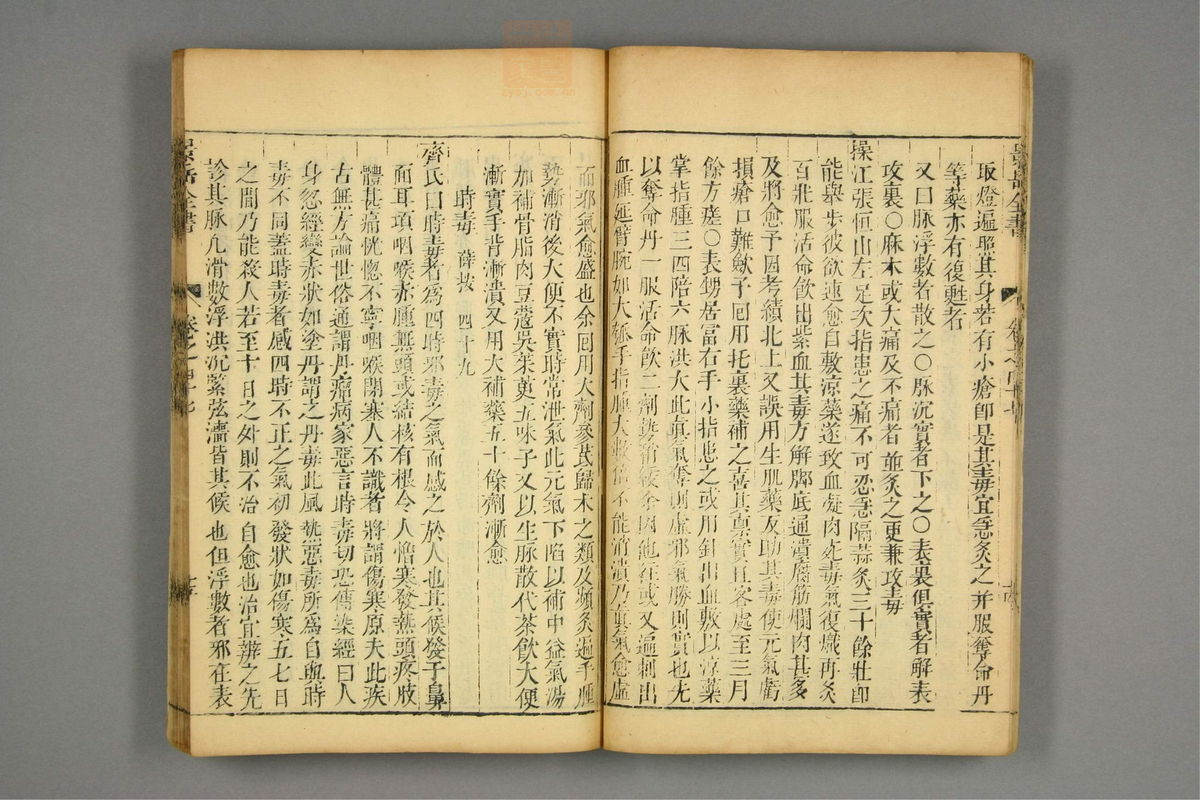 取燈遍照其身若有小瘡卽是其毒宜急灸之并服奪命丹
等藥亦有復甦者
又曰脉浮數者散之〇脉沉實者下之〇表裏俱實者解表
攻裏〇麻木或大痛及不痛者並灸之更兼攻毒
操江張恒山左足次指患之痛不可忍急隔蒜灸三十餘壯卽
能舉步彼欲速愈自敷凉藥遂致血凝肉死毒氣復熾再灸
百壯服活命飲出紫血其毒方解脚底通潰腐筋爛肉甚多
及將愈予因考績北上又誤用生肌藥反助其毒使元氣虧
損瘡口難歛予囘用托裏藥補之喜其禀實且客處至三月
餘方瘥〇表甥居富右手小指患之或用針出血敷以凉藥
掌指腫三四陪六脉洪大此眞氣奪則虚邪氣勝則實也先
以奪命丹一服活命飲二劑勢稍緩余因他往或又遍刺出
血腫延臂腕如大瓠手指腫大數倍不能消潰乃眞氣愈虚
而邪氣愈盛也余囘用大劑參茋歸朮之類及頻灸遍手腫
勢漸消後大便不實時常泄氣此元氣下陷以補中益氣湯
加補骨脂肉豆蔻吳茱萸五味子又以生脉散代茶飲大便
漸實手背漸潰又用大補藥五十餘劑漸愈
時毒 薛按 四十九
齊氏曰時毒者爲四時邪毒之氣而感之於人也其候發于鼻
面耳項咽喉赤腫無頭或結核有根令人憎寒發熱頭疼肢
體甚痛恍惚不寧咽喉閉塞人不識者將謂傷寒原夫此疾
古無方論世俗通謂丹瘤病家惡言時毒切恐傳染經曰人
身忽經變赤狀如塗丹謂之丹毒此風熱惡毒所爲自與時
毒不同蓋時毒者感四時不正之氣初發狀如傷寒五七日
之間乃能殺人若至十日之外則不治自愈也治宜辨之先
診其脉凡滑數浮洪沉緊弦濇皆其候也但浮數者邪在表
景岳全書
卷之四十七